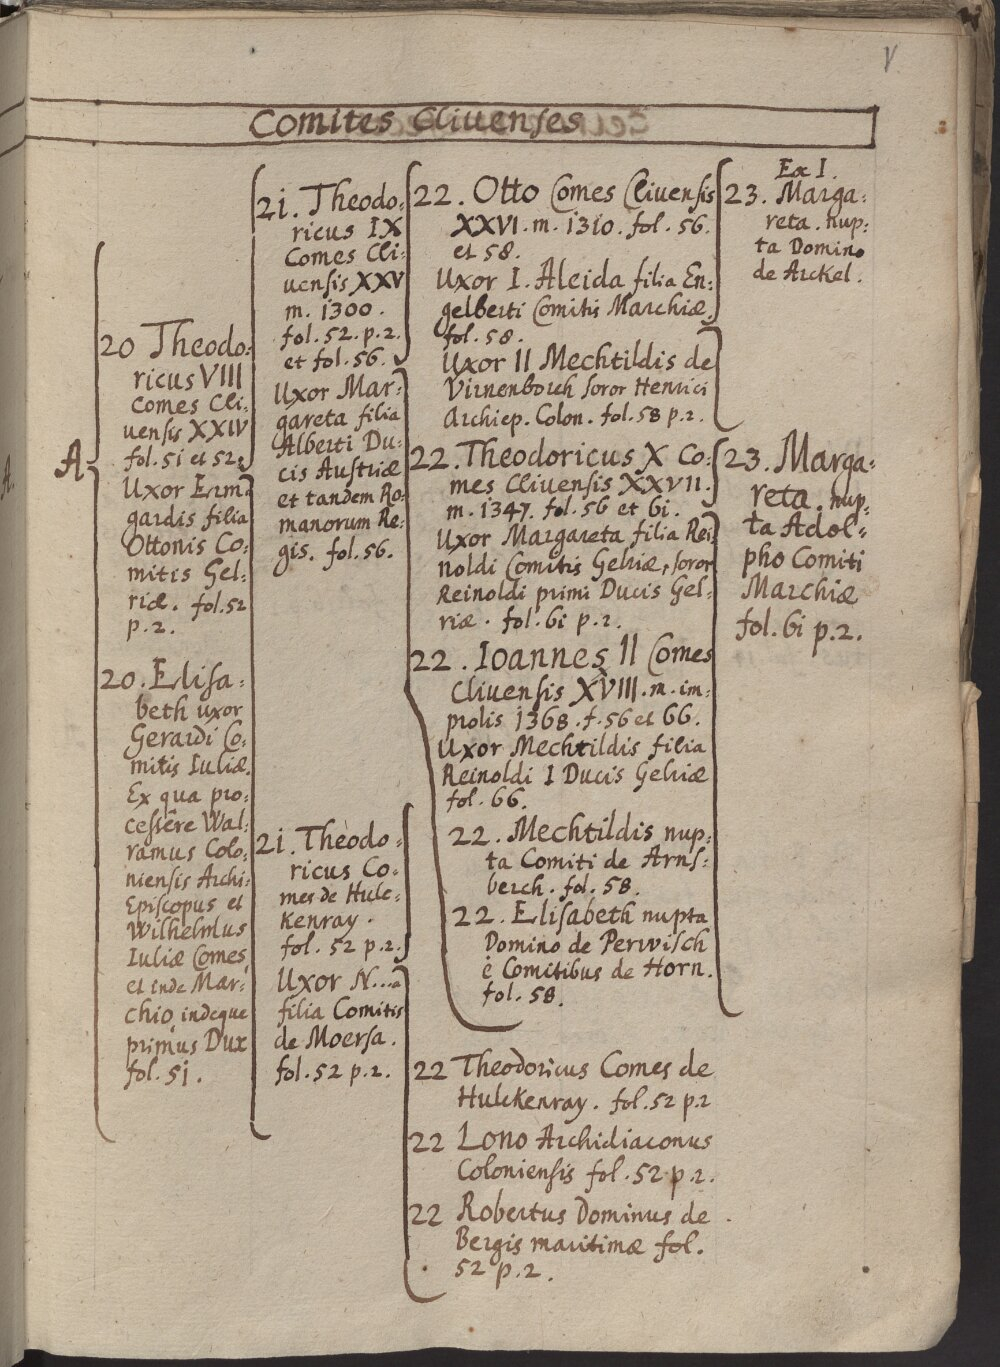 V
Comites Cliuenses
A
20 Theodo:
ricus VIII
Comes Cli:
uensis XXIV
fol. 51 et 52.
Uxor Erm:
gardis filia
Ottonis Co:
mitis Gel:
riæ. fol. 52
p. 2.
20. Elisa:
beth uxor
Gerardi Co:
mitis Iuliæ.
Ex qua pro:
cessêre Wal:
ramus Colo:
niensis Archi:
Episcopus et
Wilhelmus
Iuliæ Comes
et inde Mar:
chio, indeque
primus Dux
fol. 51.
21. Theodo:
ricus IX
Comes Cli:
uensis XXV
m. 1300.
fol. 52. p. 2.
et fol. 56.
Uxor Mar:
gareta filia
Alberti Du:
cis Austriæ
et tandem Ro:
manorum Re:
gis. fol. 56.
21. Theodo:
ricus Co:
mes de Hulc:
Kenray.
fol. 52 p. 2.
Uxor N...a
filia Comitis
de Moersa.
fol. 52 p. 2.
22. Otto Comes Cliuensis
XXVI. m. 1310. fol. 56.
et 58.
Uxor I. Aleida filia En:
gelberti Comitis Marchiæ.
fol. 58.
Uxor II Mechtildis de
Virnenborch soror Henrici
Archiep. Colon. fol. 58 p. 2.
22. Theodoricus X Co:
mes Cliuensis XXVII.
m. 1347. fol. 56 et 61.
Uxor Margareta filia Rei:
noldi Comitis Gelriæ, soror
Reinoldi primi Ducis Gel:
riæ. fol. 61 p. 2.
22. Ioannes II Comes
Cliuensis XVIII. m. im:
prolis 1368. f. 56 et 66.
Uxor Mechtildis filia
Reinoldi I Ducis Gelriæ
fol. 66.
22. Mechtildis nup:
ta Comiti de Arns:
berch. fol. 58.
22. Elisabeth nupta
Domino de Perwisch
è Comitibus de Horn.
fol. 58.
22 Theodoricus Comes de
Hulckenray. fol. 52 p. 2
22 Lono Archidiaconus
Coloniensis fol. 52 p. 2.
22 Robertus Dominus de
Bergis maritimæ fol.
52 p. 2.
Ex I.
23. Marga:
reta. nup:
ta Domino
de Arckel.
23. Marga:
reta. nup:
ta Adol:
pho Comiti
Marchiæ
fol. 61 p. 2.